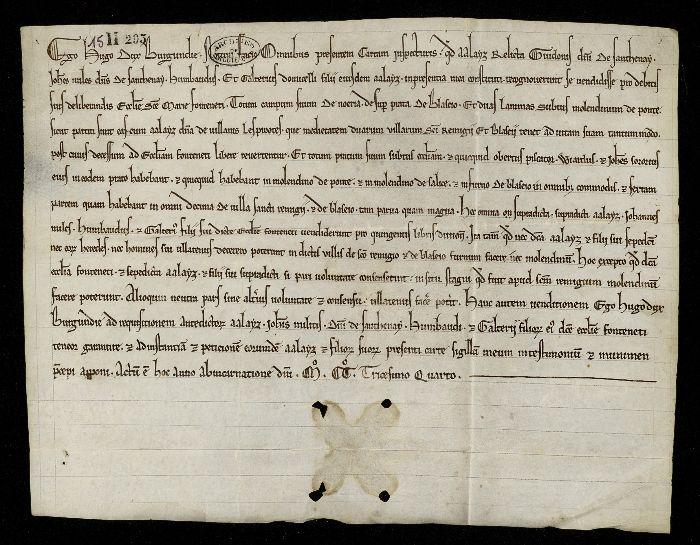 15 II 293
ARCHIVES
Ego Hugo Dux Burgundie Notum facio Omnibus presentem Cartam inspecturis. qd aalayz Relicta Guidonis dni de sauchenay.
Johes miles dns de sauchenay. humbaudus. Et Galterius domicelli filii eiusdem aalayz. inpresentia mei constituti recognoverunt se vendidisse pro debitis
suis deliberandis Ecclie Sce Marie fonteneti. Totum campum suum de noeria. desup prata de Blaseio. Et duas lammas subtus molendinum de ponte.
sicut partiti sunt cum aalayz dna de villanis que medietatem duarum villarum Sci Remigii Et Blaseii tenet ad vitam suam tantummodo.
post cuius decessum ad Eccliam fonteneti libere revertentur. Et totum pratum suum subtus eccliam. & quicquid obertus piscator. Wiardus. & Johes
eius in eodem prato habebant. & quicquid habebant in molendino de ponte. & in molendino de salice. & in furno de Blaseio in omnibus commodis. & terciam
partem quam habebant in omni decima de villa sancti remigii. & de blaseio. tam parva quam magna. Hec omnia supradicta. supradicti aalayz. Johannes
miles. humbaudus. & Galteri filii sui dicte Ecclie fonteneti vendiderunt pro quingentis libris divion. Ita tamen qd nec dca aalayz & filii sui sepedicti
nec eorum heredes. nec homines sui villarum decetero poterunt in dictis villis de sco remigio & de blaseio furnum facere nec molendinum. Hoc excepto qd dca
ecclia fonteneti. & sepedicta aalayz. & filii sui supradicti si pari voluntate consenserint. in situ stagni qd fuit apud scm remigium molendinum
facere poterunt. Alioquin neutra pars sine alterius voluntate & consensu. villarum facere poterit. Hanc autem venditionem Ego hugo dux
Burgundie ad requisitionem antedictorum aalayz. Johis militis. Dni de sauchenay. Humbaudi. & Galterii filiorum ei dce ecclie fonteneti
teneor garantire. & Ad instantiam & peticionem eorundem aalayz & filiorum suorum presenti carte sigillum meum in testimonium & munimen
precepi apponi. Actum e hoc anno Ab incarnatione dni. Mo. CCo. Tricesimo Quarto.